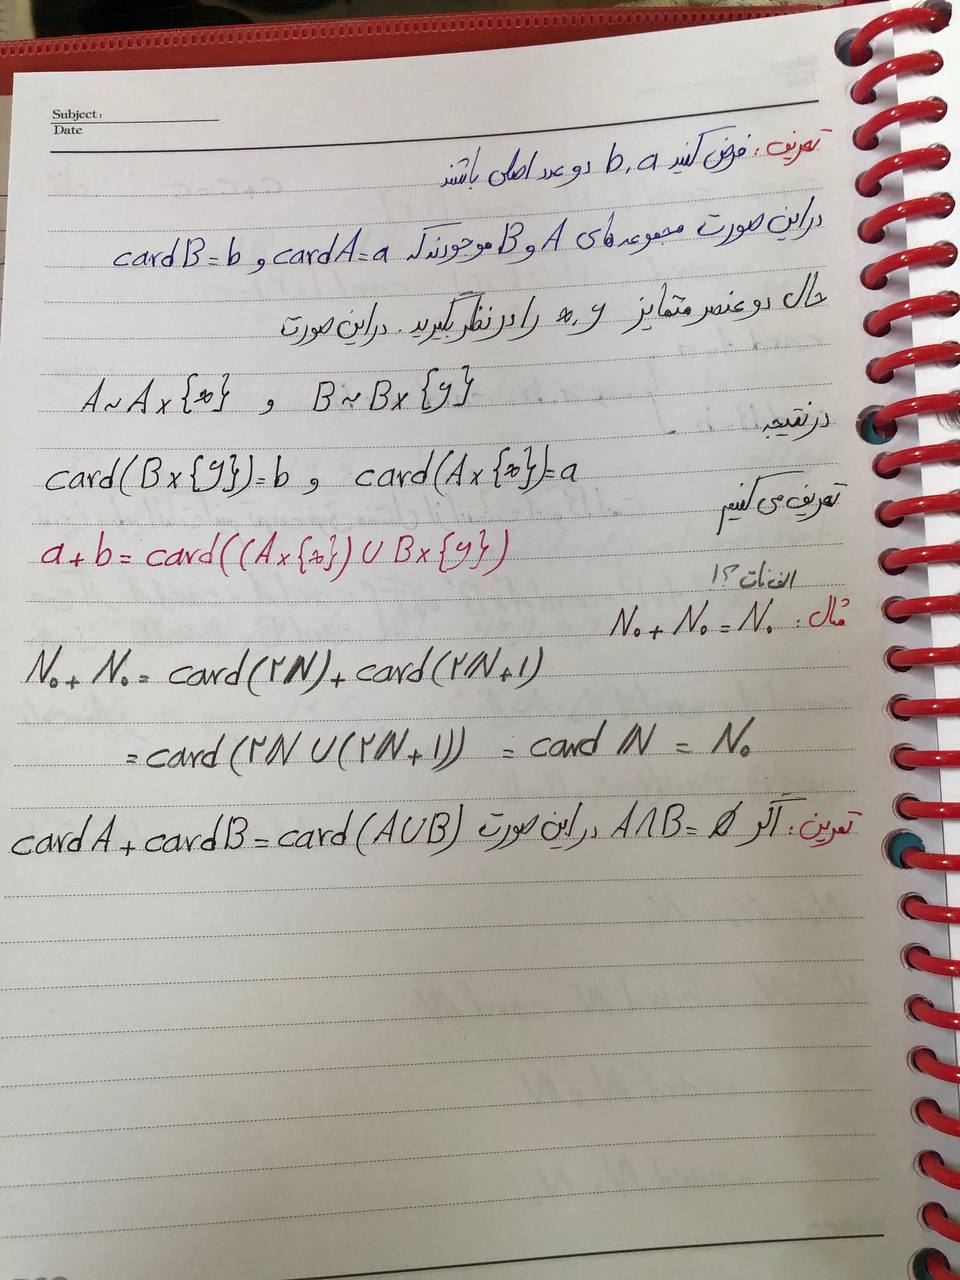 Subject:
Date
تعریف: فرض کنید a، b دو عدد اصلی باشند
در این صورت مجموعه های A و B موجودند که cardA=a و cardB=b
حال دو عنصر متمایز x، y را در نظر بگیرید. در این صورت
A~A×{x} و B~B×{y}
در نتیجه
card(B×{y})=b و card(A×{x})=a
تعریف می کنیم
a+b=card((A×{x})∪B×{y})
مثال: ℵ₀+ℵ₀=ℵ₀
ℵ₀+ℵ₀=card(۲ℕ)+card(۲ℕ+۱)
=card(۲ℕ∪(۲ℕ+۱)) =card ℕ = ℵ₀
تمرین: اگر A∩B=∅ در این صورت cardA+cardB=card(A∪B)